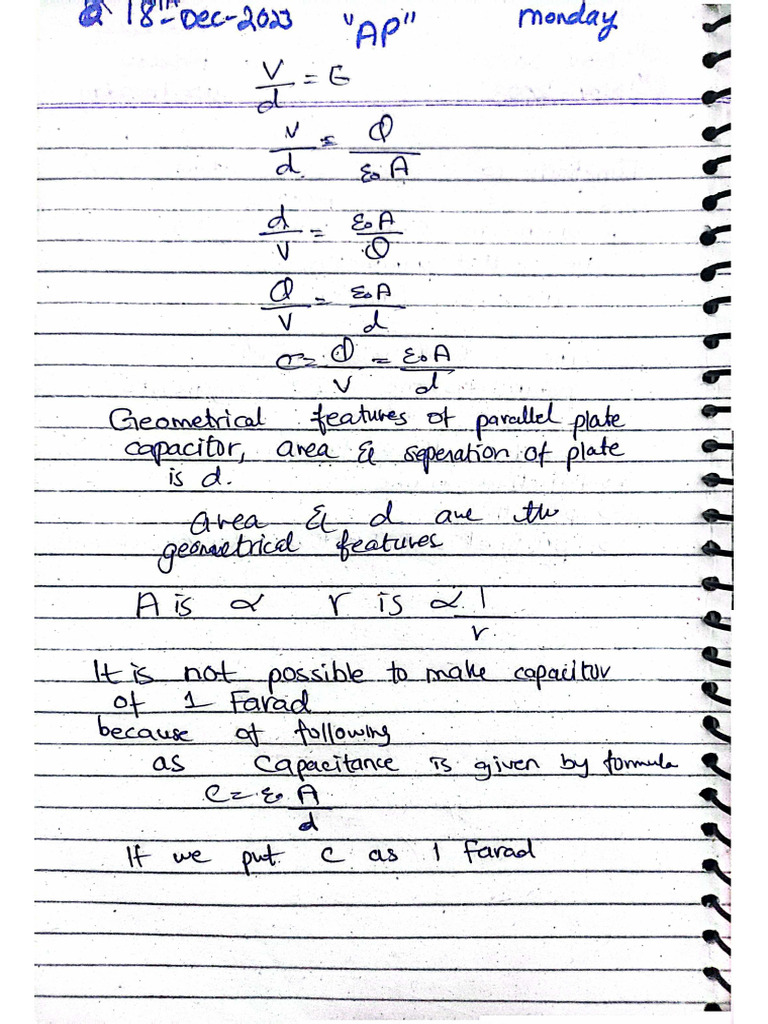 18th-Dec-2023 "AP" Monday
V/d = E
V/d = Q/ε₀A
d/V = ε₀A/Q
Q/V = ε₀A/d
C = Q/V = ε₀A/d
Geometrical features of parallel plate
capacitor, area & seperation of plate
is d.
area & d are the
geometrical features
A is ∝ r is ∝ 1/r
It is not possible to make capacitor
of 1 Farad
because of following
as Capacitance is given by formula
C = ε₀ A/d
If we put C as 1 farad